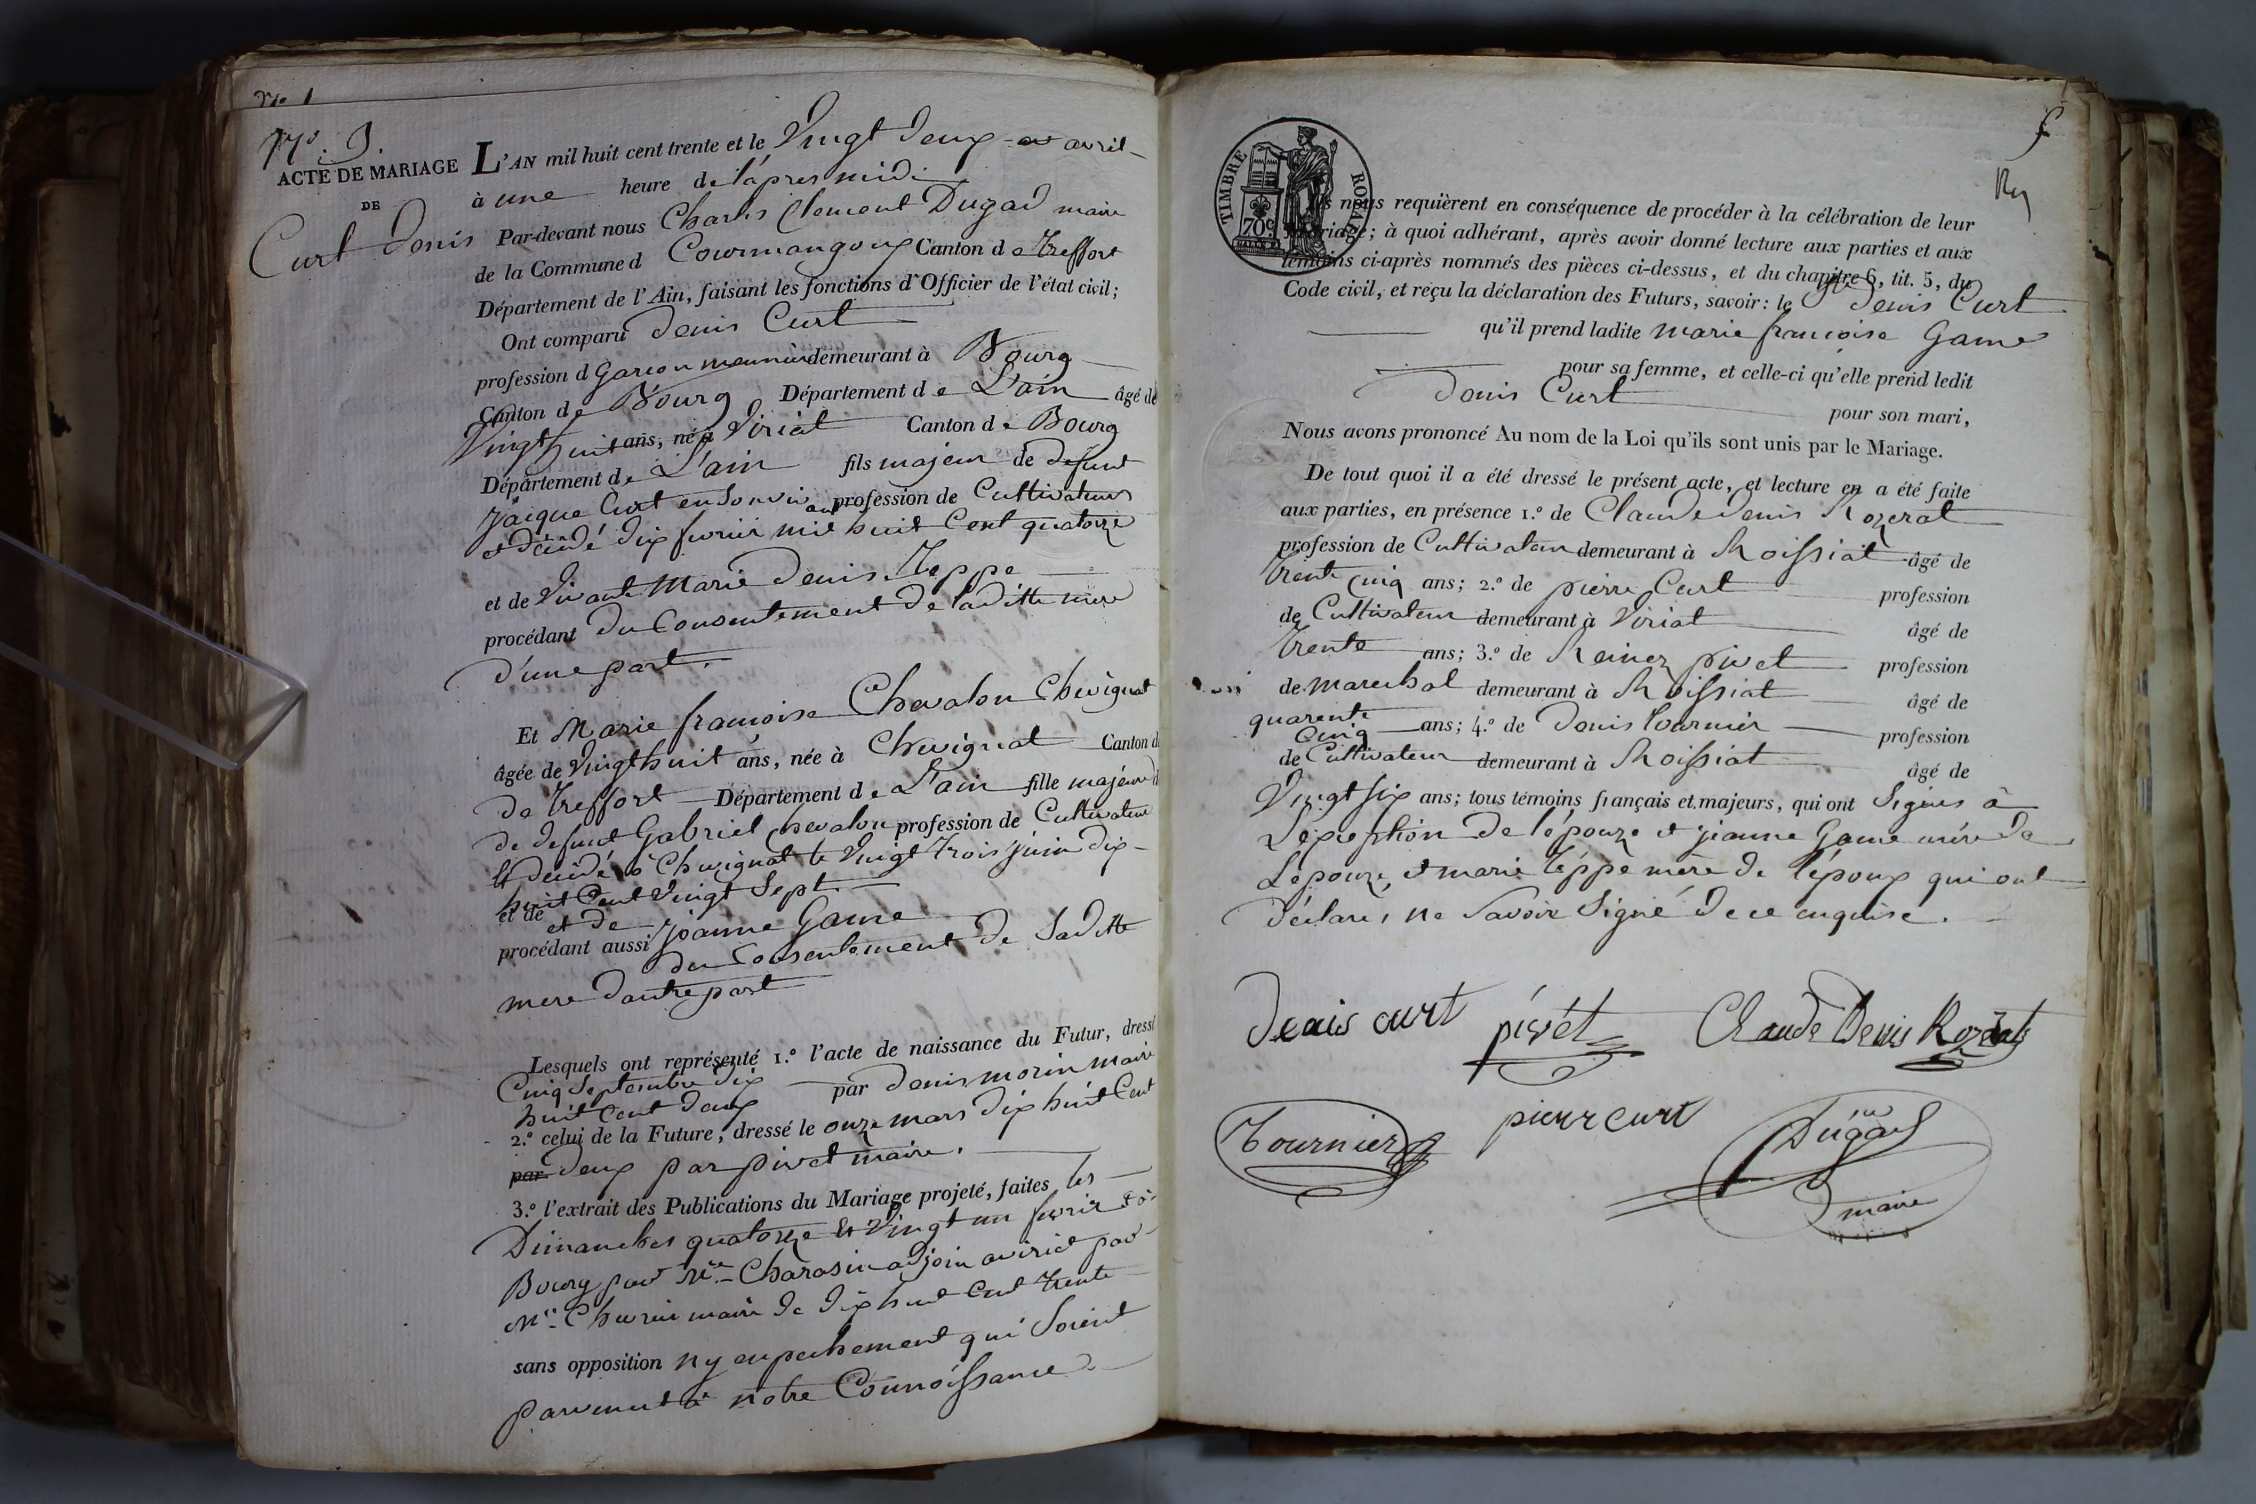 N.o 9.
ACTE DE MARIAGE
DE
Curt Denis
L'AN mil huit cent trente et le Vingt deux avril
à une heure de l'apres midi
Par-devant nous Charles Clement Dugad maire
de la Commune d Courmangoux Canton de Treffort
Département de l'Ain, faisant les fonctions d'Officier de l'état civil;
Ont comparu Denis Curt
profession d Garçon meunier demeurant à Bourg
Canton de Bourg Département de L'ain âgé de
Vingt huit ans, né à Viriat Canton de Bourg
Département de L'ain fils majeur de defunt
Jacque Curt en son vivant profession de Cultivateur
et décédé dix fevrier mil huit Cent quatorze
et de Vivante Marie Denis Teppe
procédant du Consentement de laditte mere
d'une part.
Et Marie françoise Chevalon Chevignat
âgée de Vingt huit ans, née à Chevignat Canton d
de Treffort Département de L'ain fille majeure d
de defunt Gabriel Chevalon profession de Cultivateur
et décédé à Chevignat le Vingt trois juin dix
huit Cent Vingt Sept.
et de
et de joanne Game
procédant aussi du Consentement de Saditte
mere d'autre part
Lesquels ont représenté 1.o l'acte de naissance du Futur, dressé
Cinq Septembre dix par denis morin maire
huit Cent deux
2.o celui de la Future, dressé le onze mars dix huit Cent
par deux par pivet maire.
3.o l'extrait des Publications du Mariage projeté, faites les
Dimanches quatorze et Vingt un fevrier
Bourg par Mr. Charasin adjoin a viriat par
Mr. Chevrier maire de dix huit Cent trente
sans opposition ny enpechement qui Soient
parvenut à notre Connoissance
TIMBRE ROYAL
70c
nous requièrent en conséquence de procéder à la célébration de leur
mariage; à quoi adhérant, après avoir donné lecture aux parties et aux
témoins ci-après nommés des pièces ci-dessus, et du chapitre 6, tit. 5, du
Code civil, et reçu la déclaration des Futurs, savoir: le dit Denis Curt
qu'il prend ladite marie françoise Game
pour sa femme, et celle-ci qu'elle prend ledit
Denis Curt pour son mari,
Nous avons prononcé Au nom de la Loi qu'ils sont unis par le Mariage.
De tout quoi il a été dressé le présent acte, et lecture en a été faite
aux parties, en présence 1.o de Claude denis Rozerat
profession de Cultivateur demeurant à Roissiat âgé de
trente Cinq ans; 2.o de pierre Curt profession
de Cultivateur demeurant à Viriat âgé de
trente ans; 3.o de Reinez pivet profession
de marechal demeurant à Roissiat âgé de
quarente Cinq ans; 4.o de Denis tournier profession
de Cultivateur demeurant à Roissiat âgé de
Vingt six ans; tous témoins français et majeurs, qui ont Signés à
L'éxcéption de l'épouze et jeanne Game mére de
L'epouze, et marie téppe mère de l'époux qui ont
déclarés ne Savoir Signé de ce enquise.
denis curt
pivét
Claude Denis Rozérat
Tournier
pierr curt
Dugad
maire